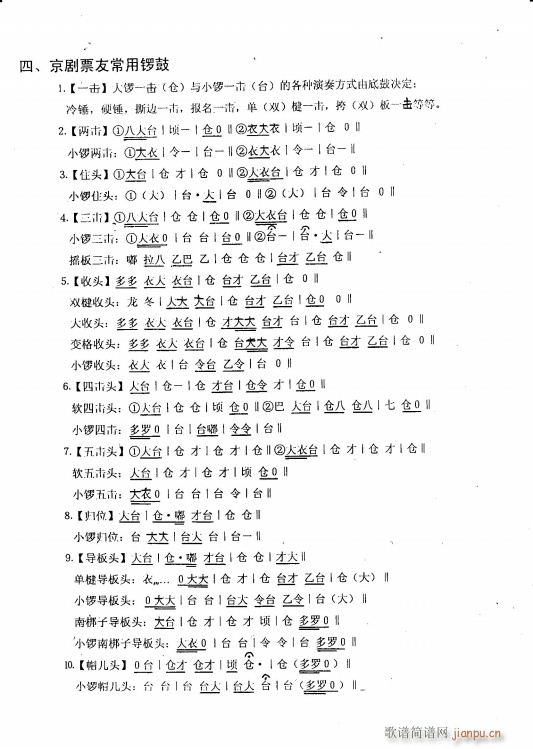 四、京剧票友常用锣鼓
1.【一击】大锣一击（仓）与小锣一击（台）的各种演奏方式由底鼓决定：
冷锤，硬锤，撕边一击，报名一击，单（双）楗一击，挎（双）板一击等等。
2.【两击】①八大台｜顷一｜仓 0‖②衣大衣｜顷一｜仓 0‖
小锣两击：①大衣｜令一｜台一‖②衣大衣｜令一｜台一‖
3.【住头】①大台｜仓 才｜仓 0‖②大衣台｜仓 才｜仓 0‖
小锣住头：①（大）｜台·大｜台 0‖②（大）｜台 令｜台 0‖
4.【三击】①八大台｜仓 仓｜仓 0‖②大衣台｜仓 仓｜仓 0‖
小锣三击：①大衣 0｜台 台｜台 0‖②台一｜台·大｜台一‖
摇板三击：嘟 拉八 乙巴 乙｜仓 仓 仓｜台才 乙台 仓‖
5.【收头】多多 衣大 衣台｜仓 台才 乙台｜仓 0‖
双楗收头：龙 冬｜大大 大台｜仓 台才 乙台｜仓 0‖
大收头：多多 衣大 衣台｜仓 才大大 台才｜仓 才台 乙台｜仓 0‖
变格收头：多多 衣大 衣台｜仓 台大大 才才 台才｜仓 才台 乙才｜仓 0‖
小锣收头：衣大 衣｜台 令台 乙令｜台 0‖
6.【四击头】大台｜仓一｜仓 才台｜仓令 才｜仓 0‖
软四击头：①大台｜仓 仓｜顷 仓 0‖②巴 大台｜仓八 仓八｜七 仓 0‖
小锣四击：多罗 0｜台｜台嘟｜令令｜台‖
7.【五击头】①大台｜仓 才｜仓 才｜仓‖②大衣台｜仓 才｜仓 才｜仓‖
软五击头：大台｜仓 才｜才｜顷 仓 0‖
小锣五击：大衣 0｜台 台｜台 令｜台‖
8.【归位】大台｜仓·嘟 才台｜仓‖
小锣归位：台 大大｜台大 台｜台一‖
9.【导板头】大台｜仓·嘟 才台｜仓 仓｜才大‖
单楗导板头：衣……0 大大｜仓 才｜仓 台才 乙台｜仓（大）‖
小锣导板头：0 大大｜台 台｜台大 令台 乙令｜台（大）‖
南梆子导板头：大台｜仓 才｜仓 才｜顷｜仓 多罗 0‖
小锣南梆子导板头：大衣 0｜台 台｜令 令｜台 多罗 0‖
10.【帽儿头】0 台｜仓才 仓才｜顷 仓·｜仓（多罗 0）‖
小锣帽儿头：台 台｜台 台大｜台大 台｜台（多罗 0）‖
歌谱简谱网
jianpu.cn